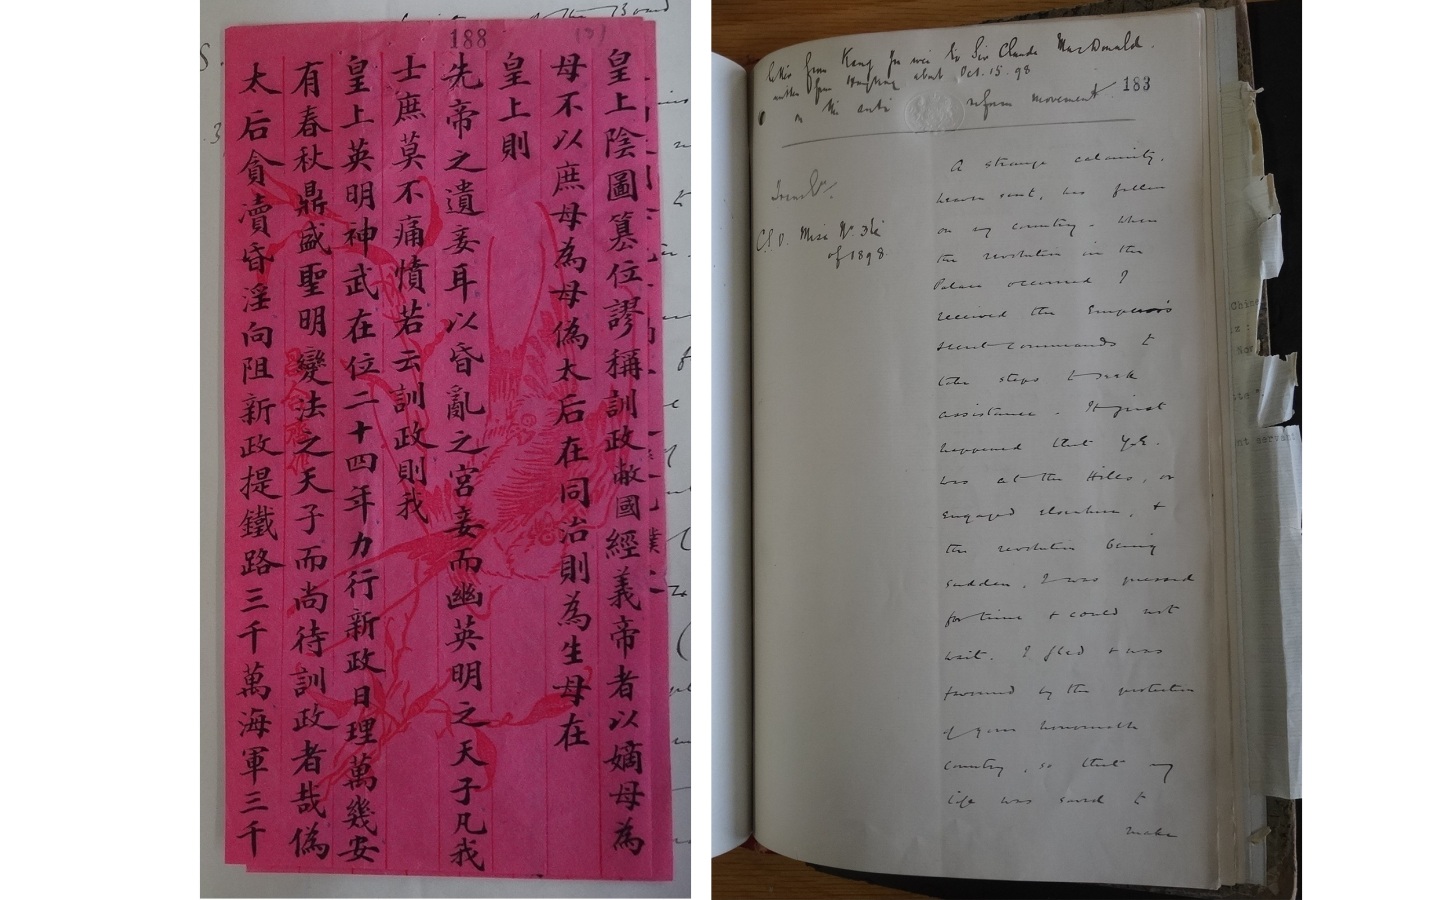 188
皇上陰圖篡位謬稱訓政敝國經義帝者以嫡母為
母不以庶母為母偽太后在同治則為生母在
皇上則
先帝之遺妾耳以昏亂之宮妾而幽英明之天子凡我
士庶莫不痛憤若云訓政則我
皇上英明神武在位二十四年力行新政日理萬幾安
有春秋鼎盛聖明變法之天子而尚待訓政者哉偽
太后貪瀆昏淫向阻新政提鐵路三千萬海軍三千
letter from Kang Yu wei to Sir Claude MacDonald.
written from Hongkong about Oct. 15. 98
on the anti reform movement
183
of 1898
A strange calamity,
heaven sent, has fallen
on my country. When
the revolution in the
Palace occurred I
received the Emperor's
secret commands to
take steps to seek
assistance. It just
happened that Y.E.
was at the Hills, or
engaged elsewhere, &
the revolution being
sudden, I was pressed
for time & could not
wait. I fled & was
favoured by the protection
of your honourable
country, so that my
life was saved to
make